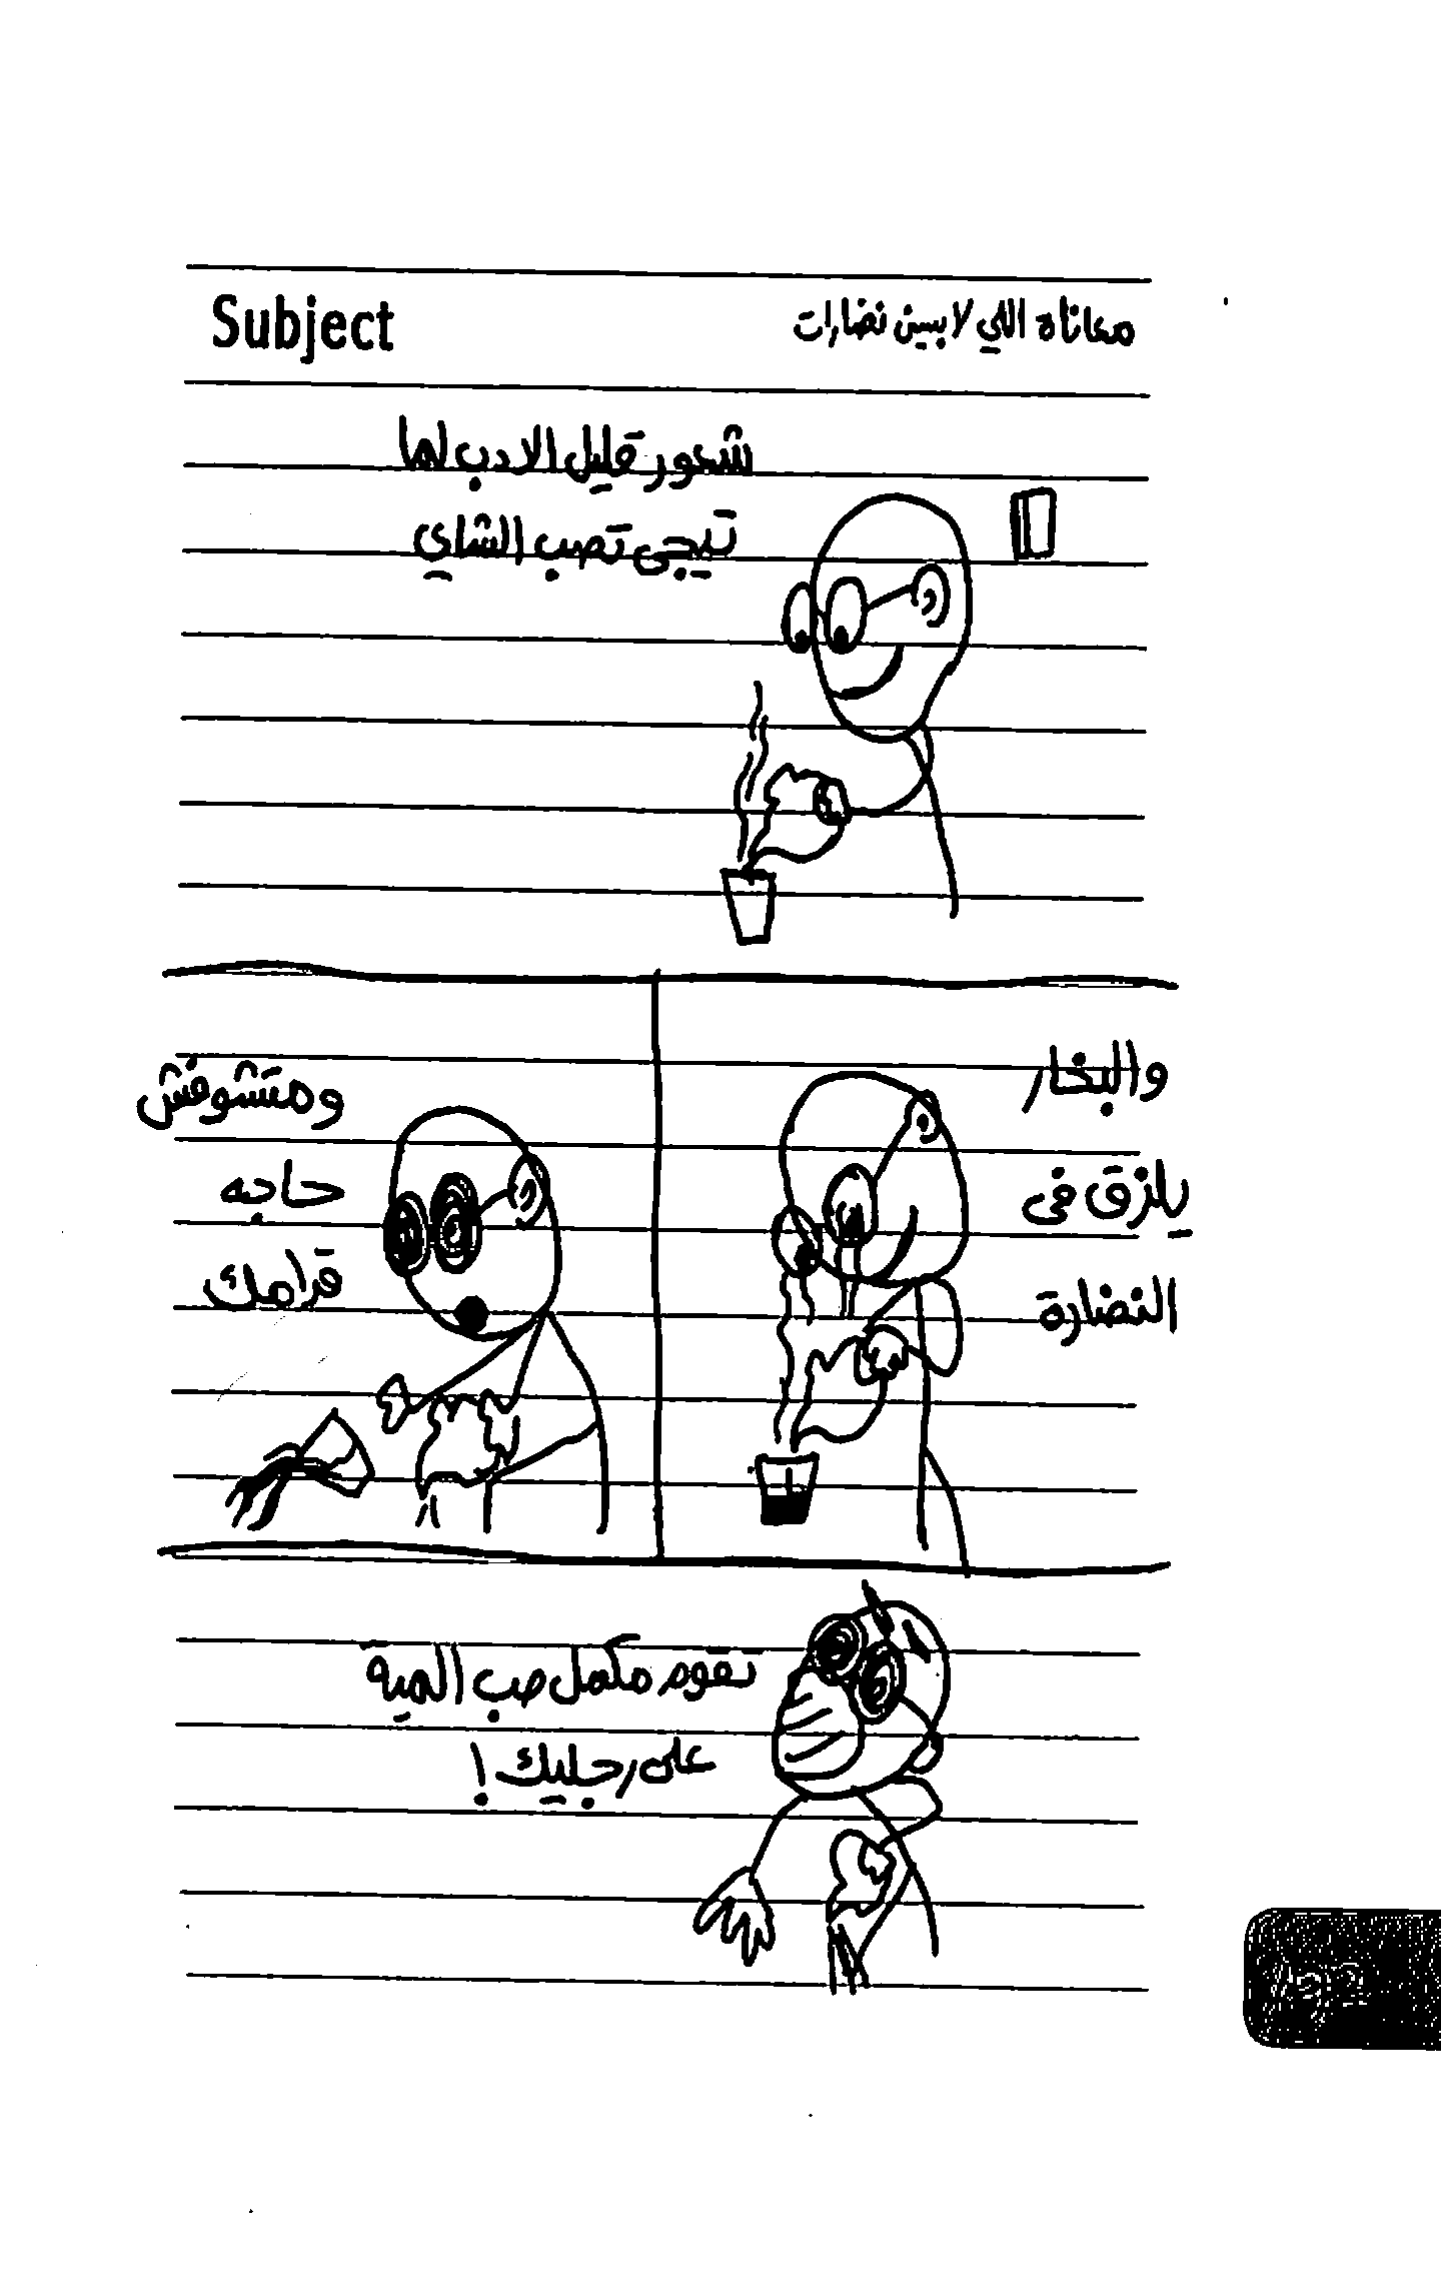 Subject
معاناة اللي لابسين نضارات
شعور قليل الادب لما
تيجى تصب الشاي
والبخار
يلزق فى
النضارة
ومتشوفش
حاجه
قدامك
تقوم مكمل صب المية
على رجليك!